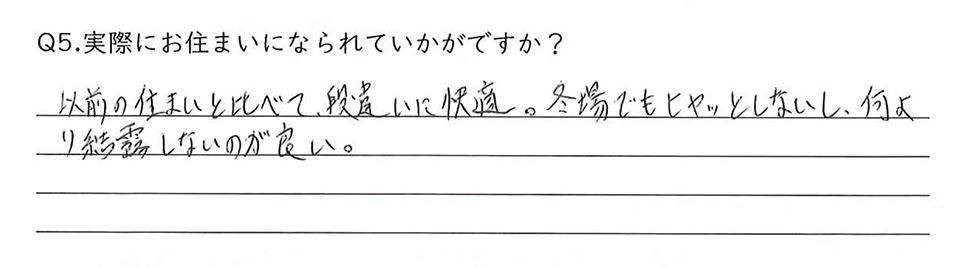 Q5.実際にお住まいになられていかがですか？
以前の住まいと比べて、段違いに快適。冬場でもヒヤッとしないし、何よ
り結露しないのが良い。